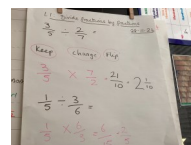 1.1 Divide fractions by fractions
3/5 ÷ 2/7 =
Keep change flip
3/5 × 7/2 = 21/10 = 2 1/10
1/5 ÷ 3/6 =
1/5 × 6/3 = 6/15 = 2/5